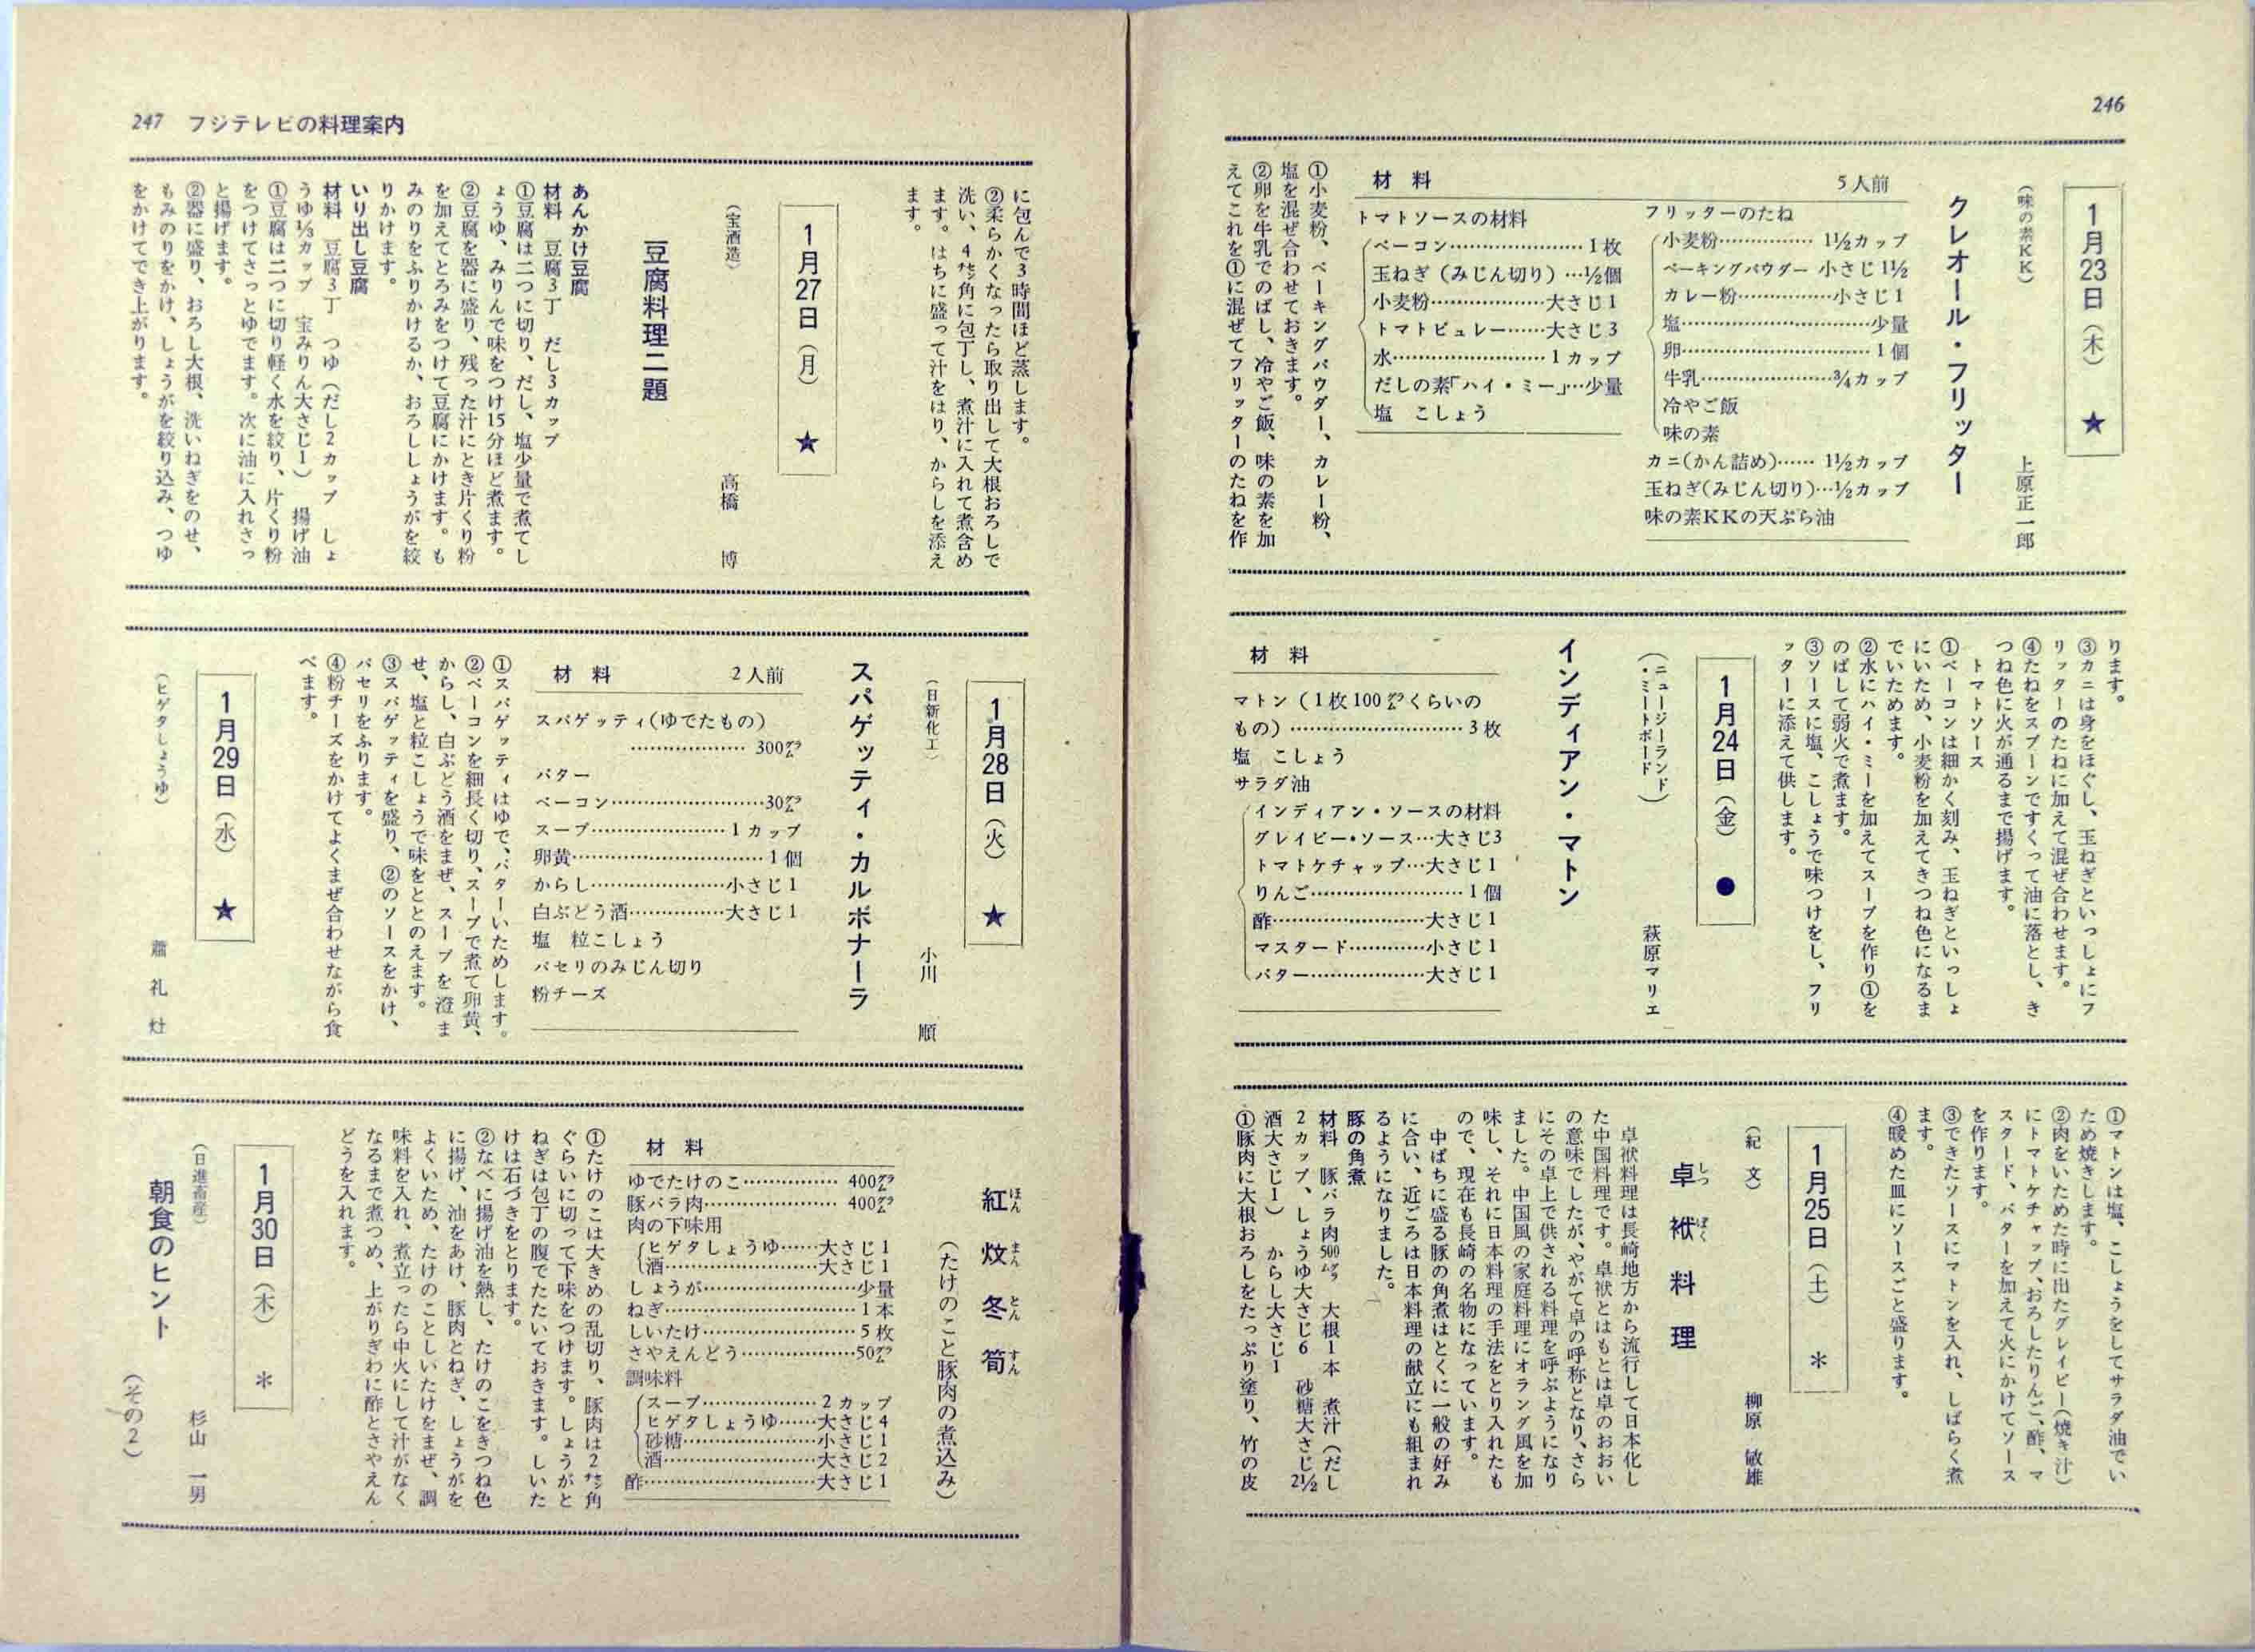 246
1月23日(木) ★
(味の素KK) 上原正一郎
クレオール・フリッター
材料 5人前
フリッターのたね
小麦粉…………… 1½カップ
ベーキングパウダー 小さじ1½
カレー粉……………小さじ1
塩…………………………少量
卵…………………………1個
牛乳…………………¾カップ
冷やご飯
味の素
カニ(かん詰め)…… 1½カップ
玉ねぎ(みじん切り)…½カップ
味の素KKの天ぷら油
トマトソースの材料
ベーコン…………………1枚
玉ねぎ(みじん切り)…½個
小麦粉………………大さじ1
トマトピュレー……大さじ3
水……………………1カップ
だしの素「ハイ・ミー」…少量
塩 こしょう
①小麦粉、ベーキングパウダー、カレー粉、
塩を混ぜ合わせておきます。
②卵を牛乳でのばし、冷やご飯、味の素を加
えてこれを①に混ぜてフリッターのたねを作
ります。
③カニは身をほぐし、玉ねぎといっしょにフ
リッターのたねに加えて混ぜ合わせます。
④たねをスプーンですくって油に落とし、き
つね色に火が通るまで揚げます。
トマトソース
①ベーコンは細かく刻み、玉ねぎといっしょ
にいため、小麦粉を加えてきつね色になるま
でいためます。
②水にハイ・ミーを加えてスープを作り①を
のばして弱火で煮ます。
③ソースに塩、こしょうで味つけをし、フリ
ッターに添えて供します。
1月24日(金) ●
(ニュージーランド
・ミートボード) 萩原マリエ
インディアン・マトン
材料
マトン(1枚100㌘くらいの
もの)………………………3枚
塩 こしょう
サラダ油
インディアン・ソースの材料
グレイビー・ソース…大さじ3
トマトケチャップ…大さじ1
りんご……………………1個
酢……………………大さじ1
マスタード…………小さじ1
バター………………大さじ1
①マトンは塩、こしょうをしてサラダ油でい
ため焼きします。
②肉をいためた時に出たグレイビー(焼き汁)
にトマトケチャップ、おろしたりんご、酢、マ
スタード、バターを加えて火にかけてソース
を作ります。
③できたソースにマトンを入れ、しばらく煮
ます。
④暖めた皿にソースごと盛ります。
1月25日(土) ＊
(紀文) 柳原敏雄
卓袱料理
しっ ぽく
卓袱料理は長崎地方から流行して日本化し
た中国料理です。卓袱とはもとは卓のおおい
の意味でしたが、やがて卓の呼称となり、さら
にその卓上で供される料理を呼ぶようになり
ました。中国風の家庭料理にオランダ風を加
味し、それに日本料理の手法をとり入れたも
ので、現在も長崎の名物になっています。
中ばちに盛る豚の角煮はとくに一般の好み
に合い、近ごろは日本料理の献立にも組まれ
るようになりました。
豚の角煮
材料 豚バラ肉500㌘ 大根1本 煮汁(だし
2カップ、しょうゆ大さじ6 砂糖大さじ2½
酒大さじ1) からし大さじ1
①豚肉に大根おろしをたっぷり塗り、竹の皮
247 フジテレビの料理案内
に包んで3時間ほど蒸します。
②柔らかくなったら取り出して大根おろしで
洗い、4㌢角に包丁し、煮汁に入れて煮含め
ます。はちに盛って汁をはり、からしを添え
ます。
1月27日(月) ★
(宝酒造) 高橋 博
豆腐料理二題
あんかけ豆腐
材料 豆腐3丁 だし3カップ
①豆腐は二つに切り、だし、塩少量で煮てし
ょうゆ、みりんで味をつけ15分ほど煮ます。
②豆腐を器に盛り、残った汁にとき片くり粉
を加えてとろみをつけて豆腐にかけます。も
みのりをふりかけるか、おろししょうがを絞
りかけます。
いり出し豆腐
材料 豆腐3丁 つゆ(だし2カップ しょ
うゆ⅓カップ 宝みりん大さじ1) 揚げ油
①豆腐は二つに切り軽く水を絞り、片くり粉
をつけてさっとゆでます。次に油に入れさっ
と揚げます。
②器に盛り、おろし大根、洗いねぎをのせ、
もみのりをかけ、しょうがを絞り込み、つゆ
をかけてでき上がります。
1月28日(火) ★
(日新化工) 小川 順
スパゲッティ・カルボナーラ
材料 2人前
スパゲッティ(ゆでたもの)
……………… 300㌘
バター
ベーコン……………………30㌘
スープ…………………1カップ
卵黄…………………………1個
からし…………………小さじ1
白ぶどう酒……………大さじ1
塩 粒こしょう
パセリのみじん切り
粉チーズ
①スパゲッティはゆで、バターいためします。
②ベーコンを細長く切り、スープで煮て卵黄、
からし、白ぶどう酒をまぜ、スープを澄ま
せ、塩と粒こしょうで味をととのえます。
③スパゲッティを盛り、②のソースをかけ、
パセリをふります。
④粉チーズをかけてよくまぜ合わせながら食
べます。
1月29日(水) ★
(ヒゲタしょうゆ) 蕭礼灶
紅炆冬筍
ほん まん とん すん
(たけのこと豚肉の煮込み)
材料
ゆでたけのこ…………… 400㌘
豚バラ肉………………… 400㌘
肉の下味用
ヒゲタしょうゆ……大さじ1
酒……………………大さじ1
しょうが……………………少量
ねぎ…………………………1本
しいたけ……………………5枚
さやえんどう………………50㌘
調味料
スープ………………2カップ
ヒゲタしょうゆ……大さじ4
砂糖…………………小さじ1
酒……………………大さじ2
酢………………………大さじ1
①たけのこは大きめの乱切り、豚肉は2㌢角
ぐらいに切って下味をつけます。しょうがと
ねぎは包丁の腹でたたいておきます。しいた
けは石づきをとります。
②なべに揚げ油を熱し、たけのこをきつね色
に揚げ、油をあけ、豚肉とねぎ、しょうがを
よくいため、たけのことしいたけをまぜ、調
味料を入れ、煮立ったら中火にして汁がなく
なるまで煮つめ、上がりぎわに酢とさやえん
どうを入れます。
1月30日(木) ＊
(日進畜産) 杉山一男
朝食のヒント
(その2)